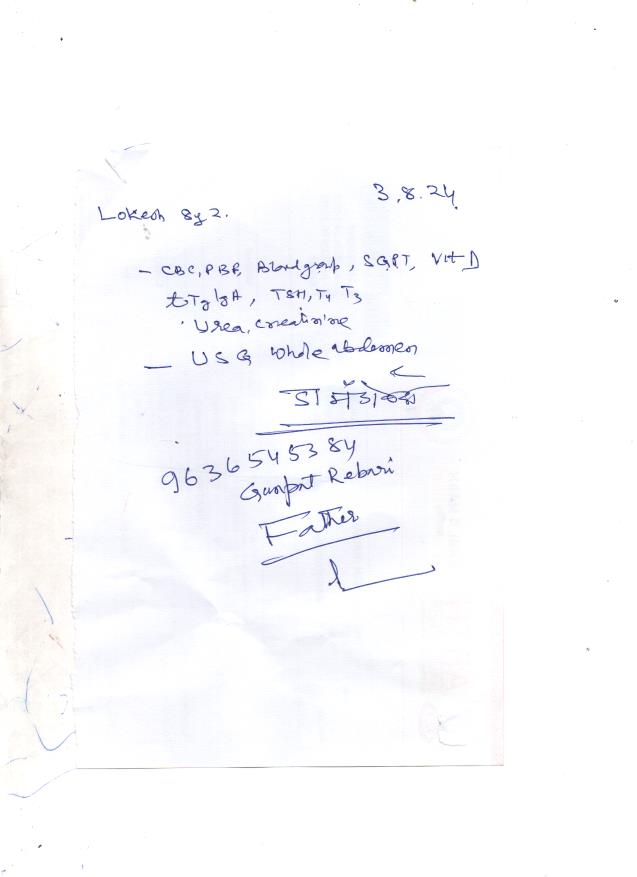 3.8.24
Lokesh 8y 2.
- CBC, PBF, Blood group, SGPT, Vit D
tTg IgA, TSH, T4 T3
Urea, creatinine
- USG Whole abdomen
डा
9636545384
Ganpat Rebari
Father